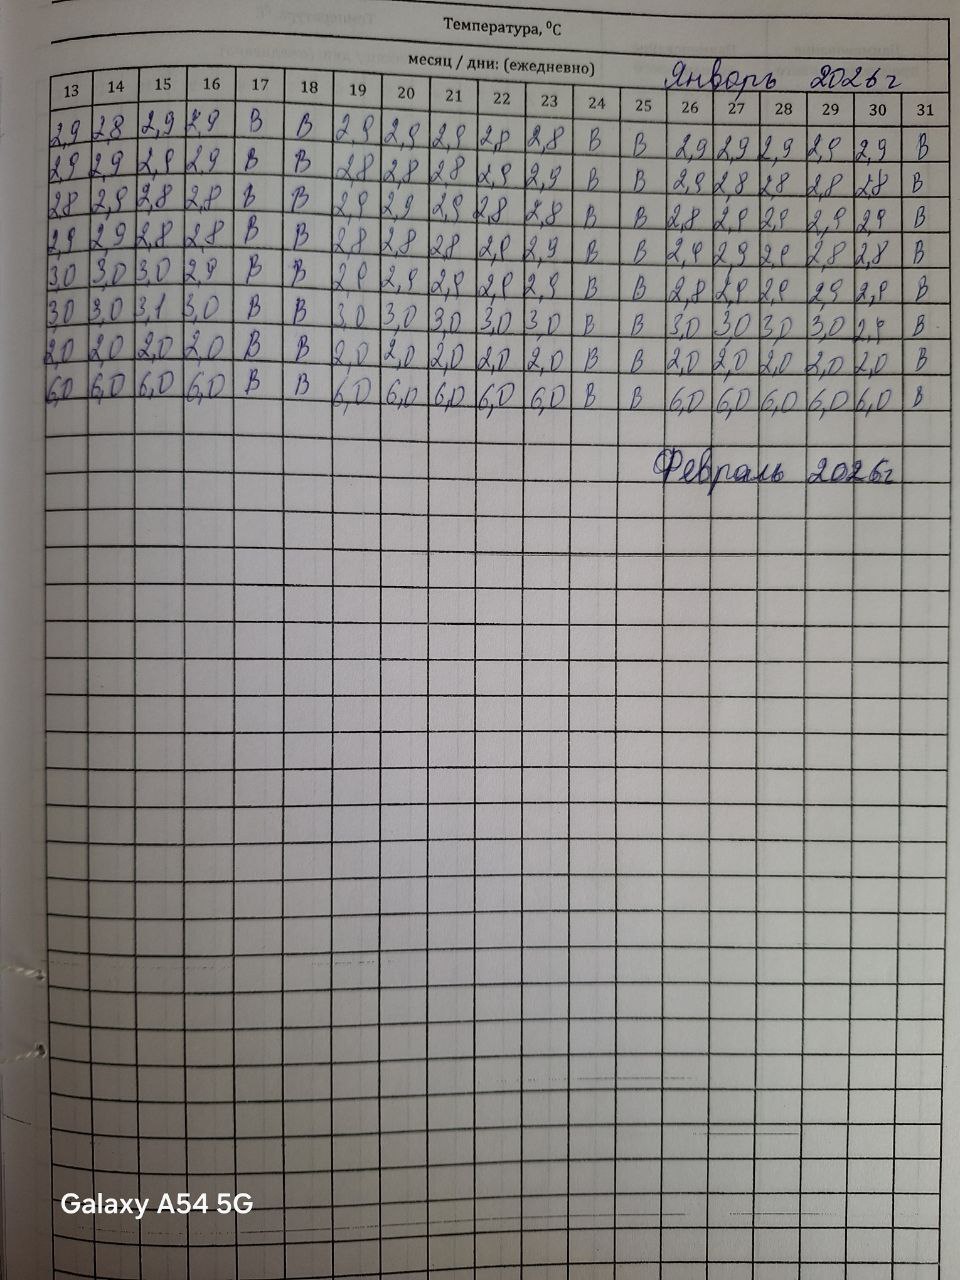 Температура, ⁰С
месяц / дни: (ежедневно) Январь 2026г
13 14 15 16 17 18 19 20 21 22 23 24 25 26 27 28 29 30 31
2,9 2,8 2,9 2,9 В В 2,9 2,9 2,9 2,8 2,8 В В 2,9 2,9 2,9 2,9 2,9 В
2,9 2,9 2,9 2,9 В В 2,8 2,8 2,8 2,9 2,9 В В 2,9 2,8 2,8 2,8 2,8 В
2,8 2,9 2,8 2,8 В В 2,9 2,9 2,9 2,8 2,8 В В 2,8 2,9 2,9 2,9 2,9 В
2,9 2,9 2,8 2,8 В В 2,8 2,8 2,8 2,9 2,9 В В 2,9 2,9 2,9 2,8 2,8 В
3,0 3,0 3,0 2,9 В В 2,9 2,9 2,9 2,9 2,9 В В 2,8 2,9 2,9 2,9 2,9 В
3,0 3,0 3,1 3,0 В В 3,0 3,0 3,0 3,0 3,0 В В 3,0 3,0 3,0 3,0 2,9 В
2,0 2,0 2,0 2,0 В В 2,0 2,0 2,0 2,0 2,0 В В 2,0 2,0 2,0 2,0 2,0 В
6,0 6,0 6,0 6,0 В В 6,0 6,0 6,0 6,0 6,0 В В 6,0 6,0 6,0 6,0 6,0 В
Февраль 2026г
Galaxy A54 5G